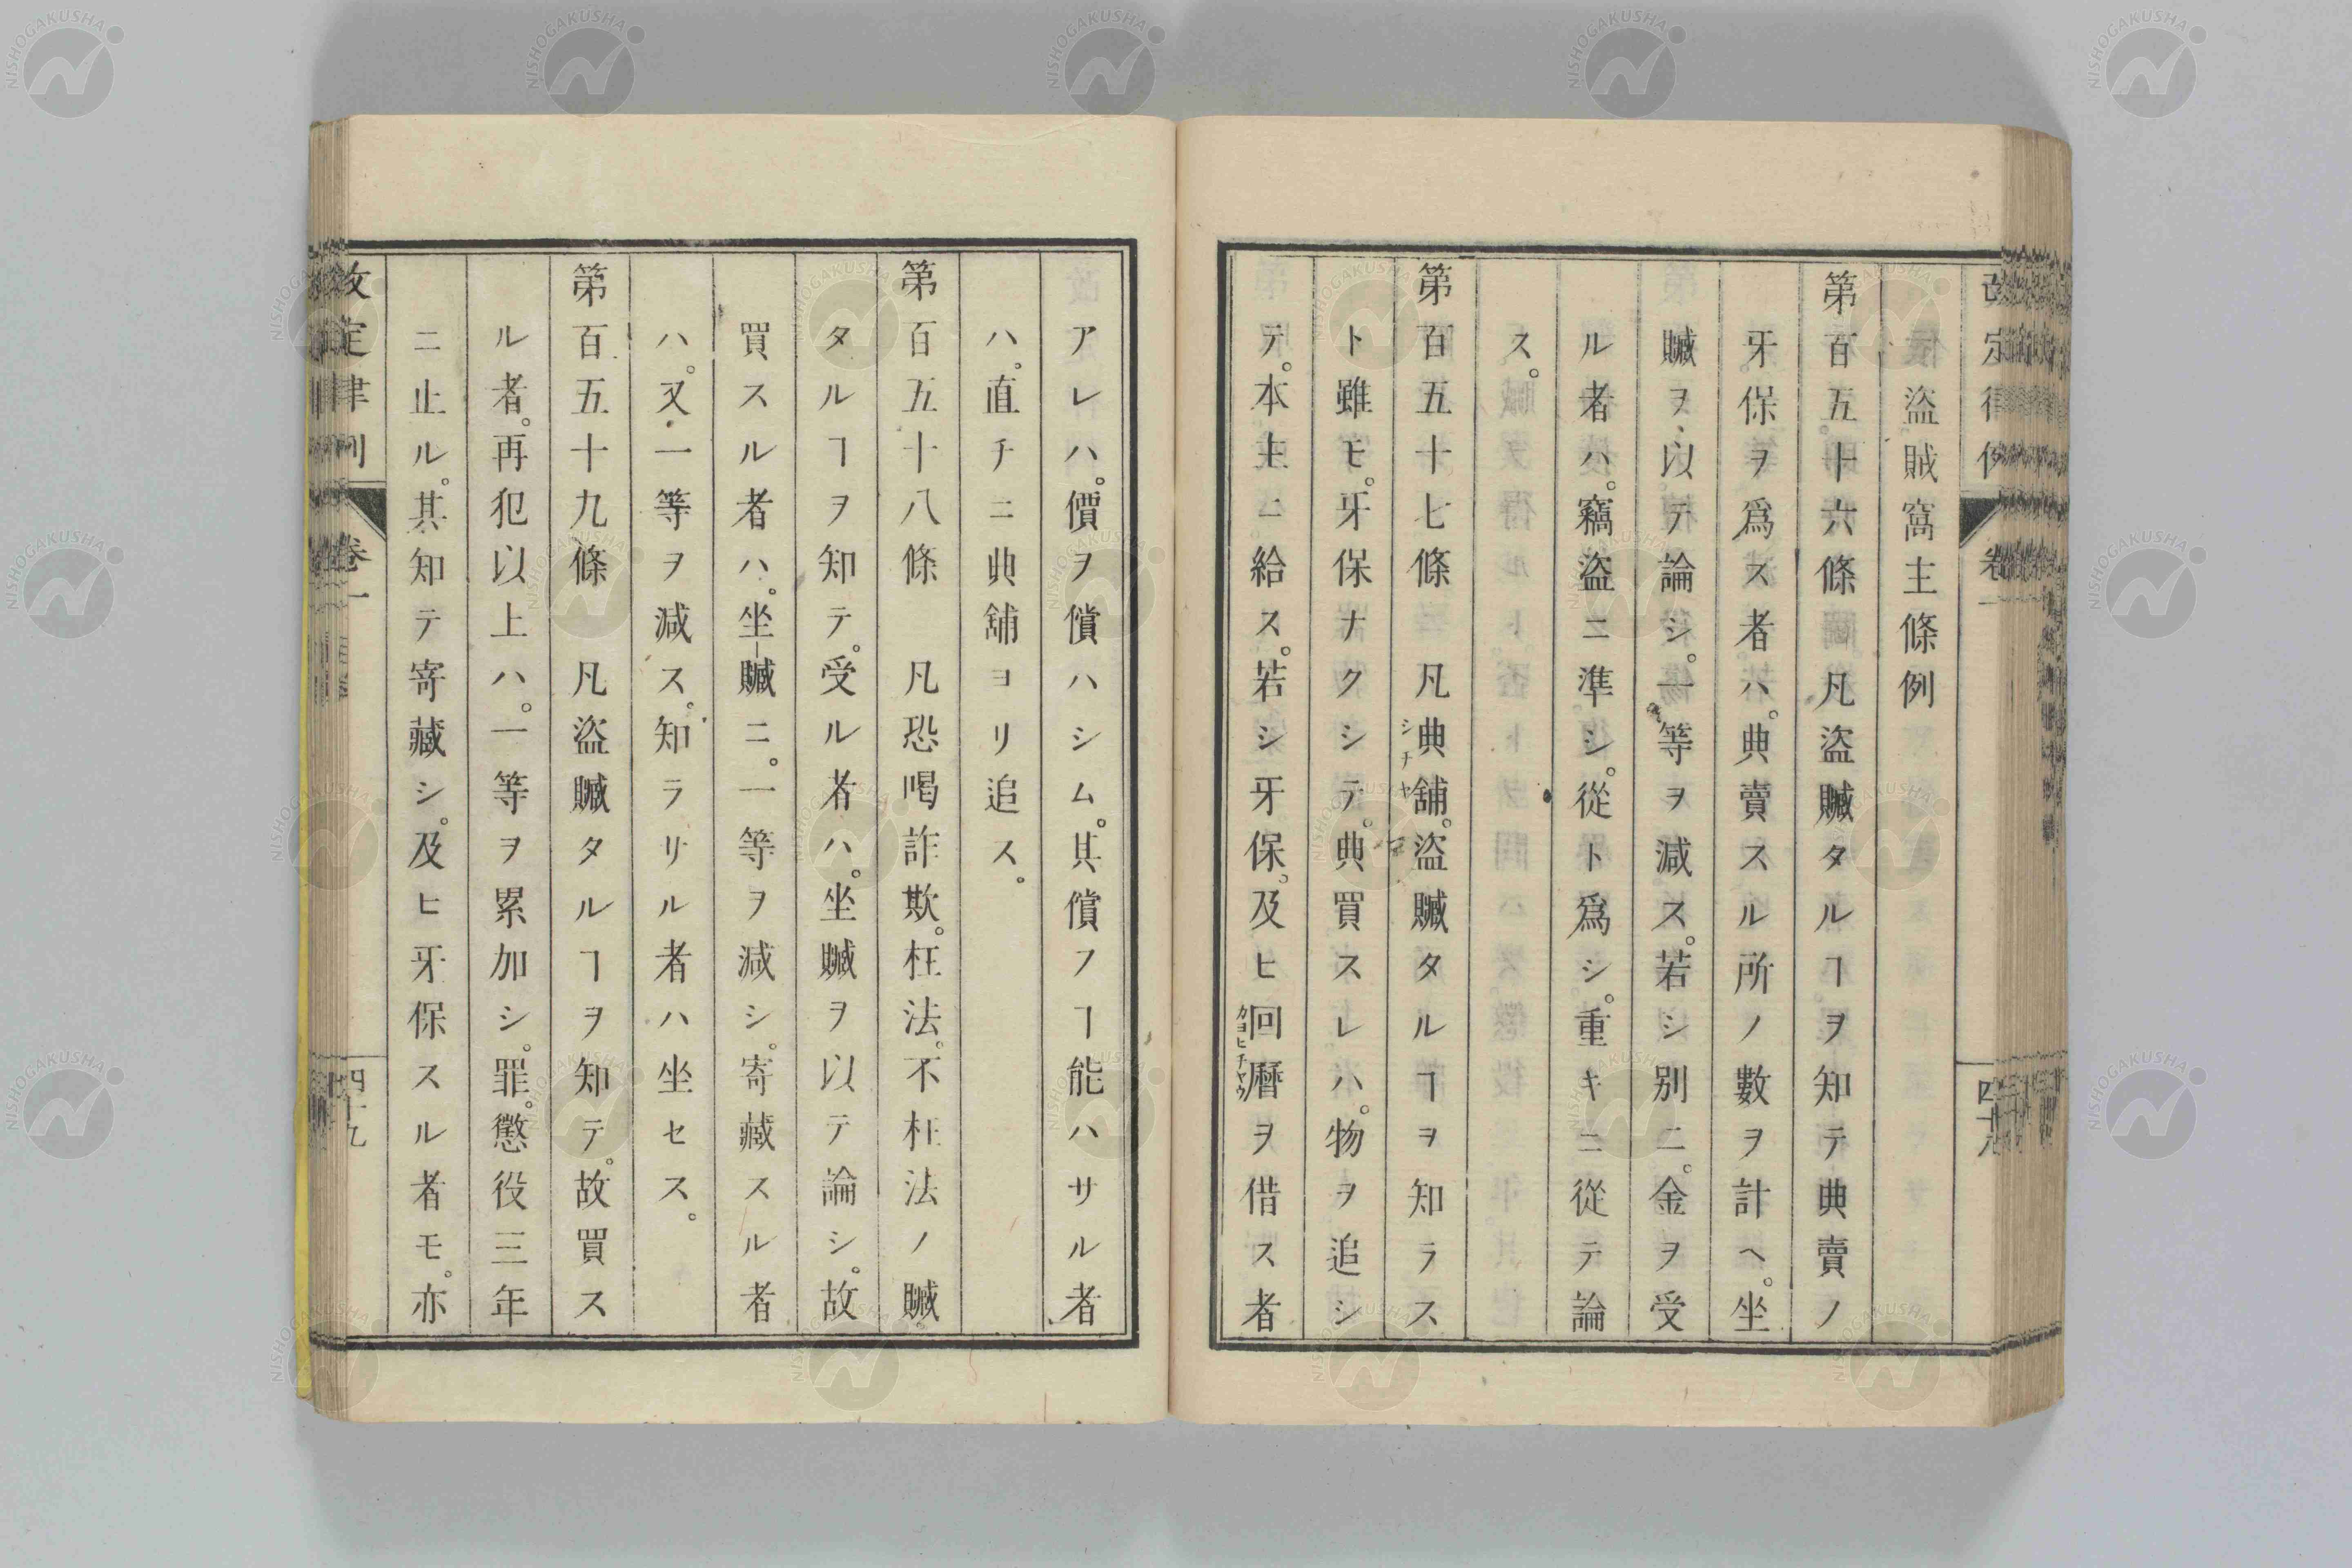 改定律例 卷一 四十八
盜賊窩主條例
第百五十六條 凡盜贓タルヿヲ知テ典賣ノ
牙保ヲ爲ス者ハ。典賣スル所ノ數ヲ計ヘ。坐
贓ヲ以テ論シ。一等ヲ減ス。若シ別ニ。金ヲ受
ル者ハ。竊盜ニ準シ。從ト爲シ。重キニ從テ論
ス。
第百五十七條 凡典舖。盜贓タルヿヲ知ラス
シチヤ
ト雖モ。牙保ナクシテ。典買スレハ。物ヲ追シ
テ。本主ニ給ス。若シ牙保。及ヒ回曆ヲ借ス者
カヨヒチヤウ
アレハ。價ヲ償ハシム。其償フヿ能ハサル者
ハ。直チニ典舖ヨリ追ス。
第百五十八條 凡恐喝詐欺。枉法。不枉法ノ贓
タルヿヲ知テ。受ル者ハ。坐贓ヲ以テ論シ。故
買スル者ハ。坐贓ニ。一等ヲ減シ。寄藏スル者
ハ。又一等ヲ減ス。知ラサル者ハ坐セス。
第百五十九條 凡盜贓タルヿヲ知テ。故買ス
ル者。再犯以上ハ。一等ヲ累加シ。罪。懲役三年
ニ止ル。其知テ寄藏シ。及ヒ牙保スル者モ。亦
改定律例 卷一 四十九
NISHOGAKUSHA